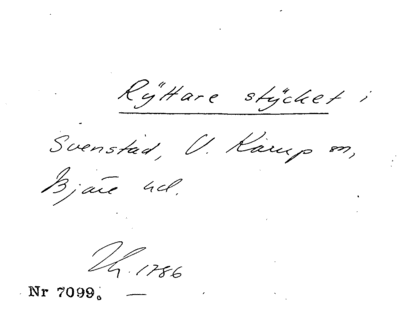 Ryttare stycket i
Svenstad, V. Karup sn,
Bjäre hd.
Lh. 1786
Nr 7099. —